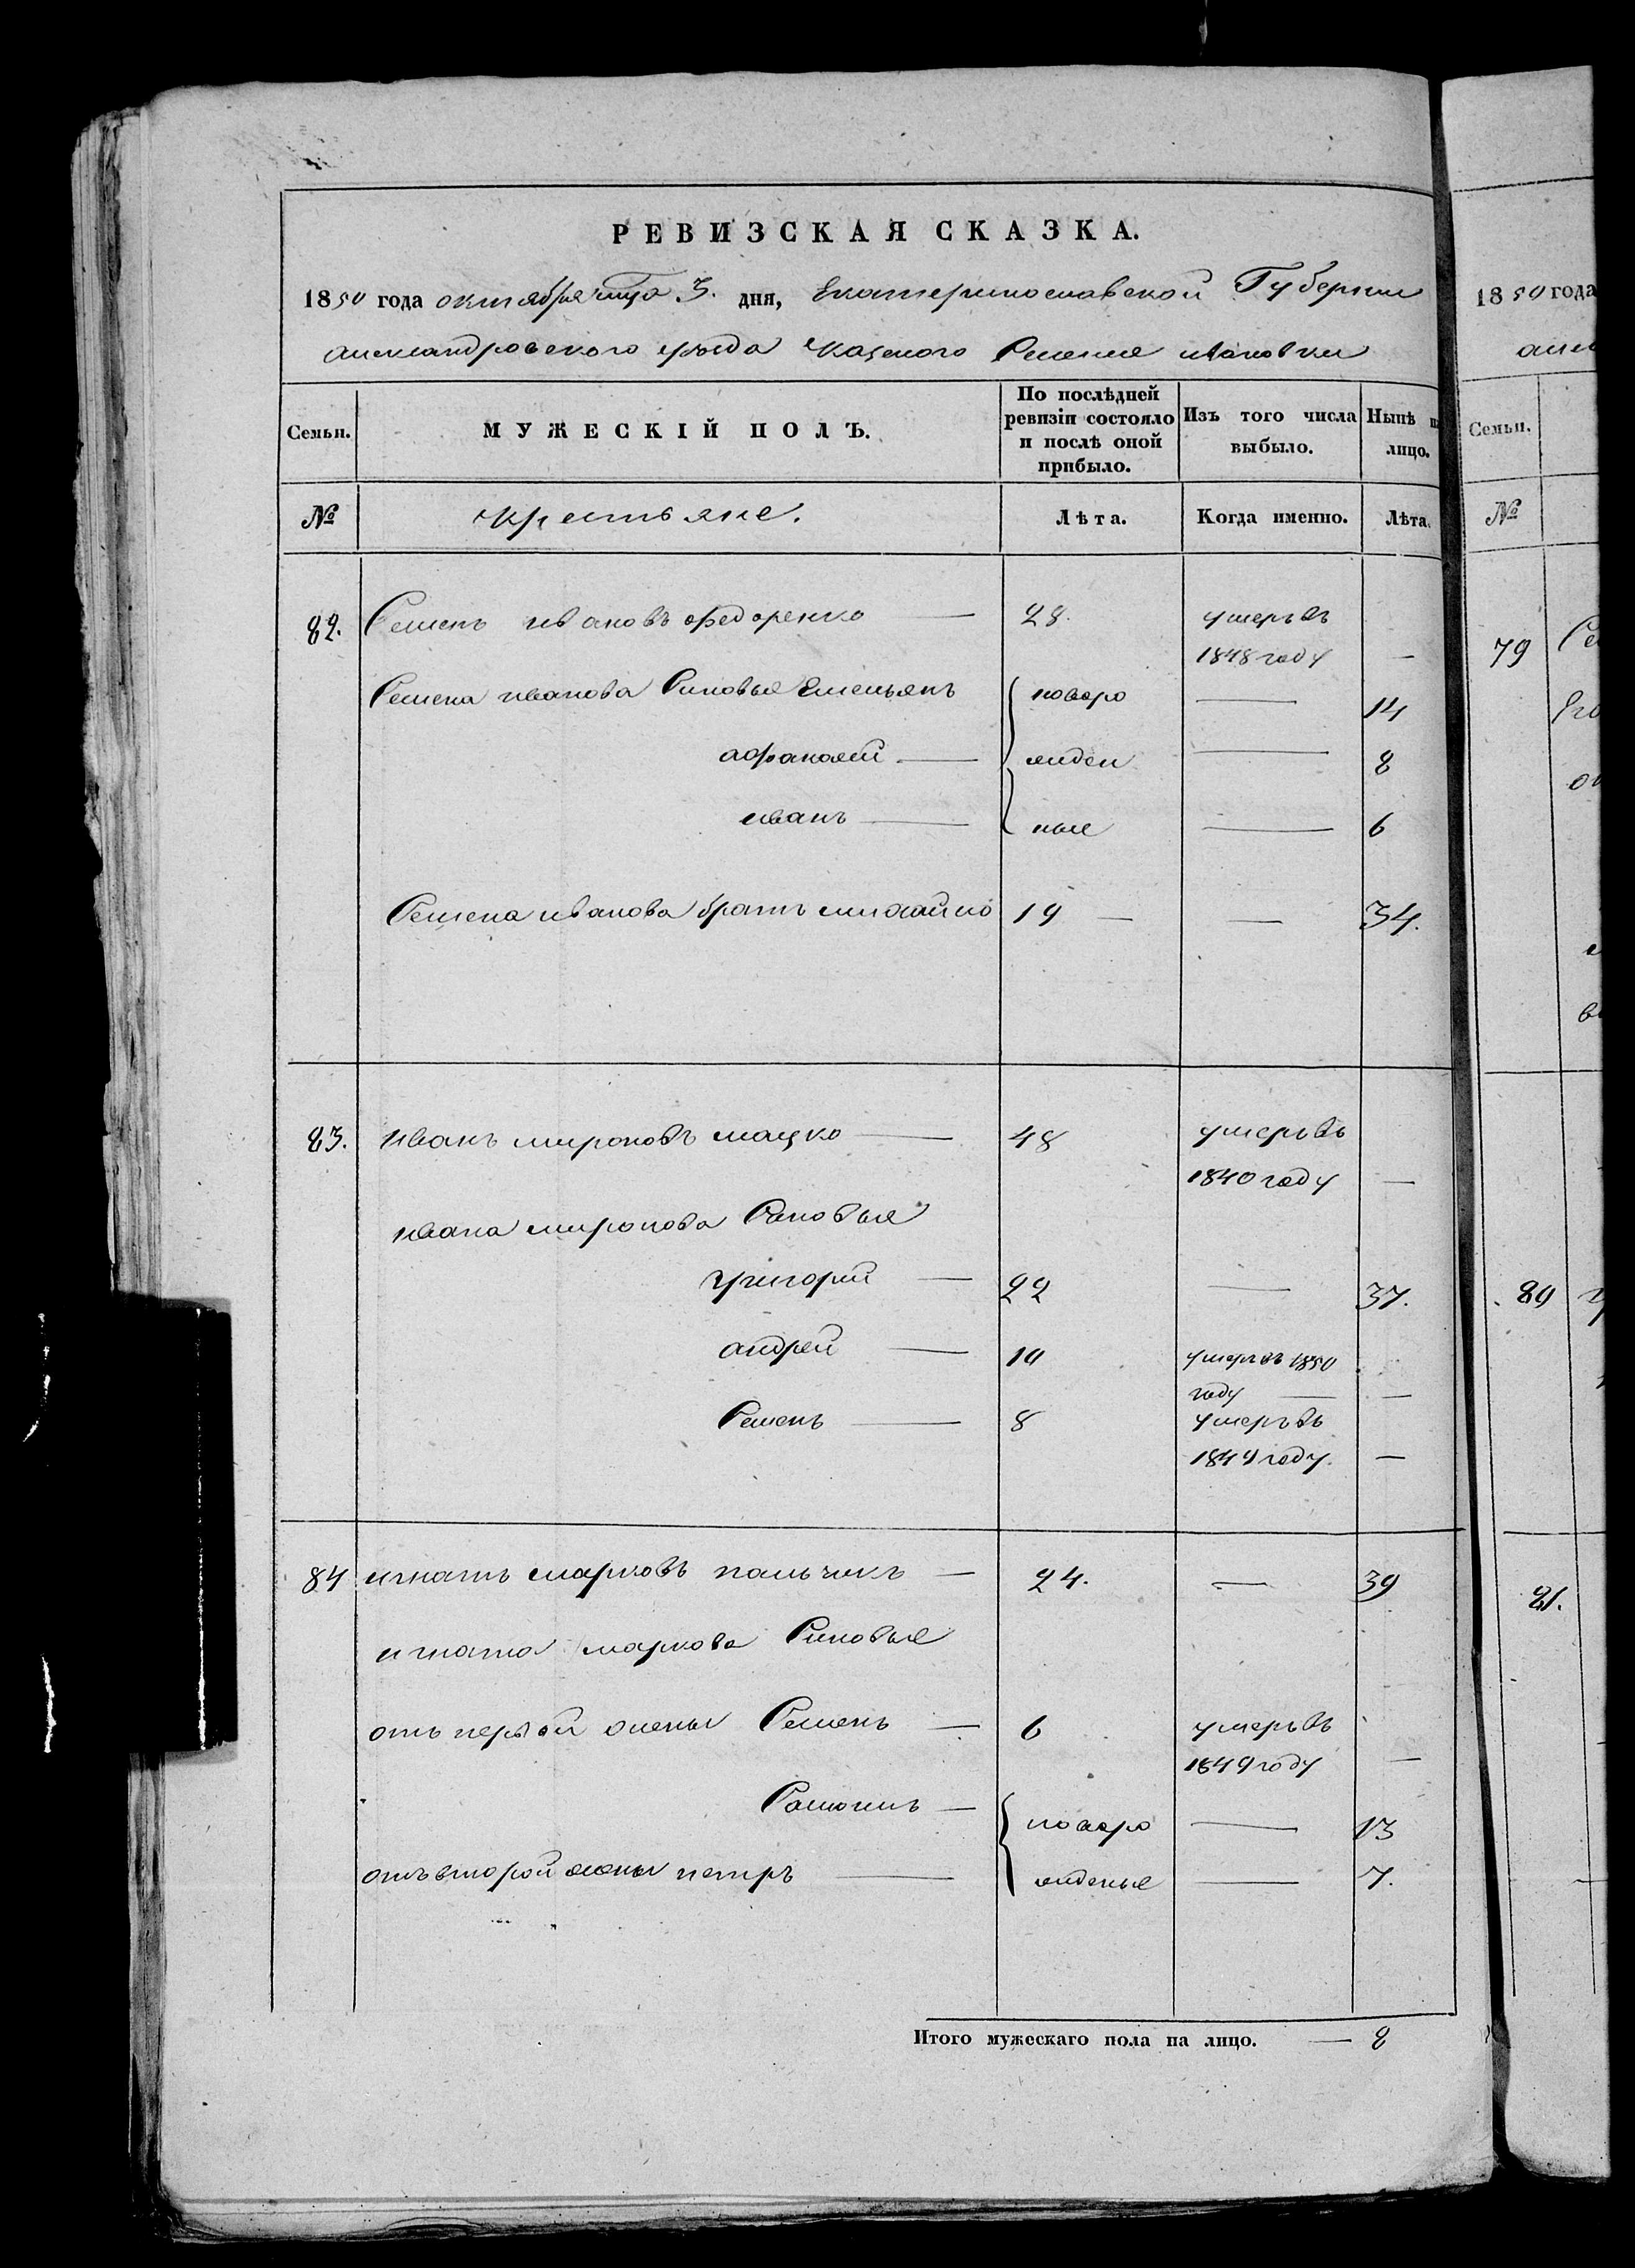 РЕВИЗСКАЯ СКАЗКА.
1850 года октября мца 3. дня, Екатеринославской Губернии
александровского уезда казеного Селения ивановки
Семьи.
МУЖЕСКІЙ ПОЛЪ.
По послѣдней ревизіи состояло и послѣ оной прибыло.
Изъ того числа выбыло.
Нынѣ н лицо.
№
крестьяне.
Лѣта.
Когда именно.
Лѣта.
82. Семенъ ивановъ федоренко — 28. умеръ въ
1848 году —
Семена иванова Синовья Емельянъ новоро — 14
афанасей — жден — 8
иванъ — ные — 6
Семена иванова братъ михайло 19 — — 34.
83. иванъ мироновъ мацко — 48 умеръ въ
1840 году —
ивана миронова Синовья
григорий — 22 — 37.
андрей — 10 умеръ въ 1850
году — —
Семенъ — 8 умеръ въ
1849 году. —
84 игнатъ марковъ пальчикъ — 24. — 39
игната маркова Синовья
отъ первой жены Семенъ — 6 умеръ въ
1849 году —
— новоро — 13
отъ второй жены петръ — жденые — 7.
Итого мужескаго пола на лицо. — 8
1850 года
Семьи.
№
79
80
81.